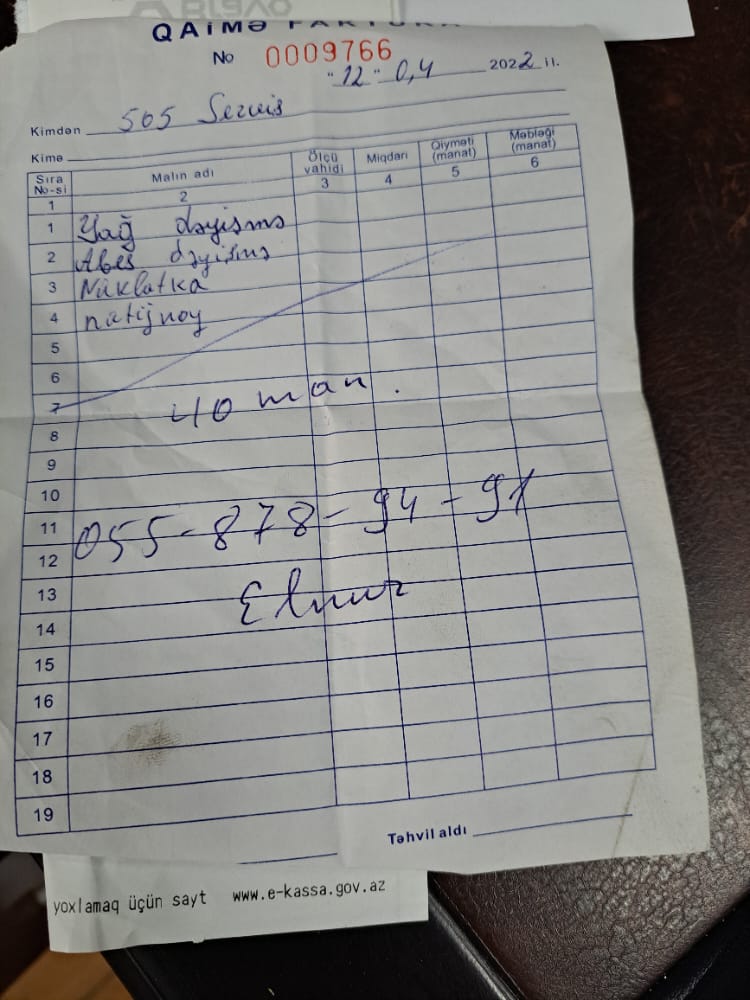 QAİMƏ FAKTURA
No 0009766
"12" 0,4 2022 il.
Kimdən 505 Servis
Kimə
Sıra No-si Malın adı Ölçü vahidi Miqdarı Qiyməti (manat) Məbləği (manat)
1 2 3 4 5 6
1 Yağ dəyişmə
2 Abes dəyişmə
3 Nüklatka
4 natijnoy
5
6
7 40 man.
8
9
10
11 055-878-94-91
12
13 Elnur
14
15
16
17
18
19
Təhvil aldı
yoxlamaq üçün sayt www.e-kassa.gov.az